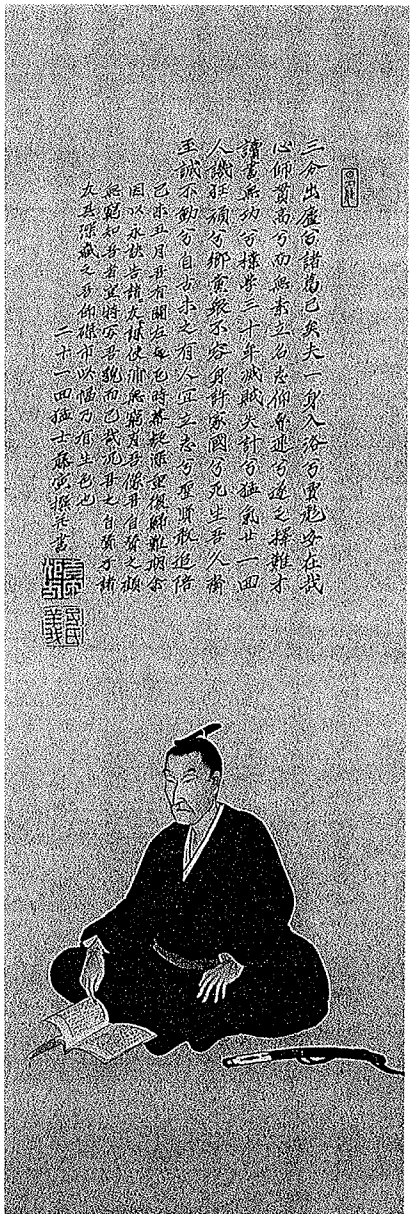 三分出廬兮諸葛已矣夫一身入洛兮賈彪安在哉
心師貫高兮而無素立名志仰魯連兮遂乏釋難才
讀書無功兮樸學三十年滅賊失計兮猛氣廿一回
人譏狂頑兮鄉黨衆不容身許家國兮死生吾久齊
至誠不動兮自古未之有人宜立志兮聖賢敢追陪
己未五月吾有関左之厄時幕疑深重復帰難期余
因以永訣告諸友謀使浦無窮肖吾像吾自賛之顧
無窮知吾者豈特写吾貌而已哉況吾之自賛乎諸
友其深蔵之吾即磔市此幅乃有生色也
二十一回猛士藤寅撰并書